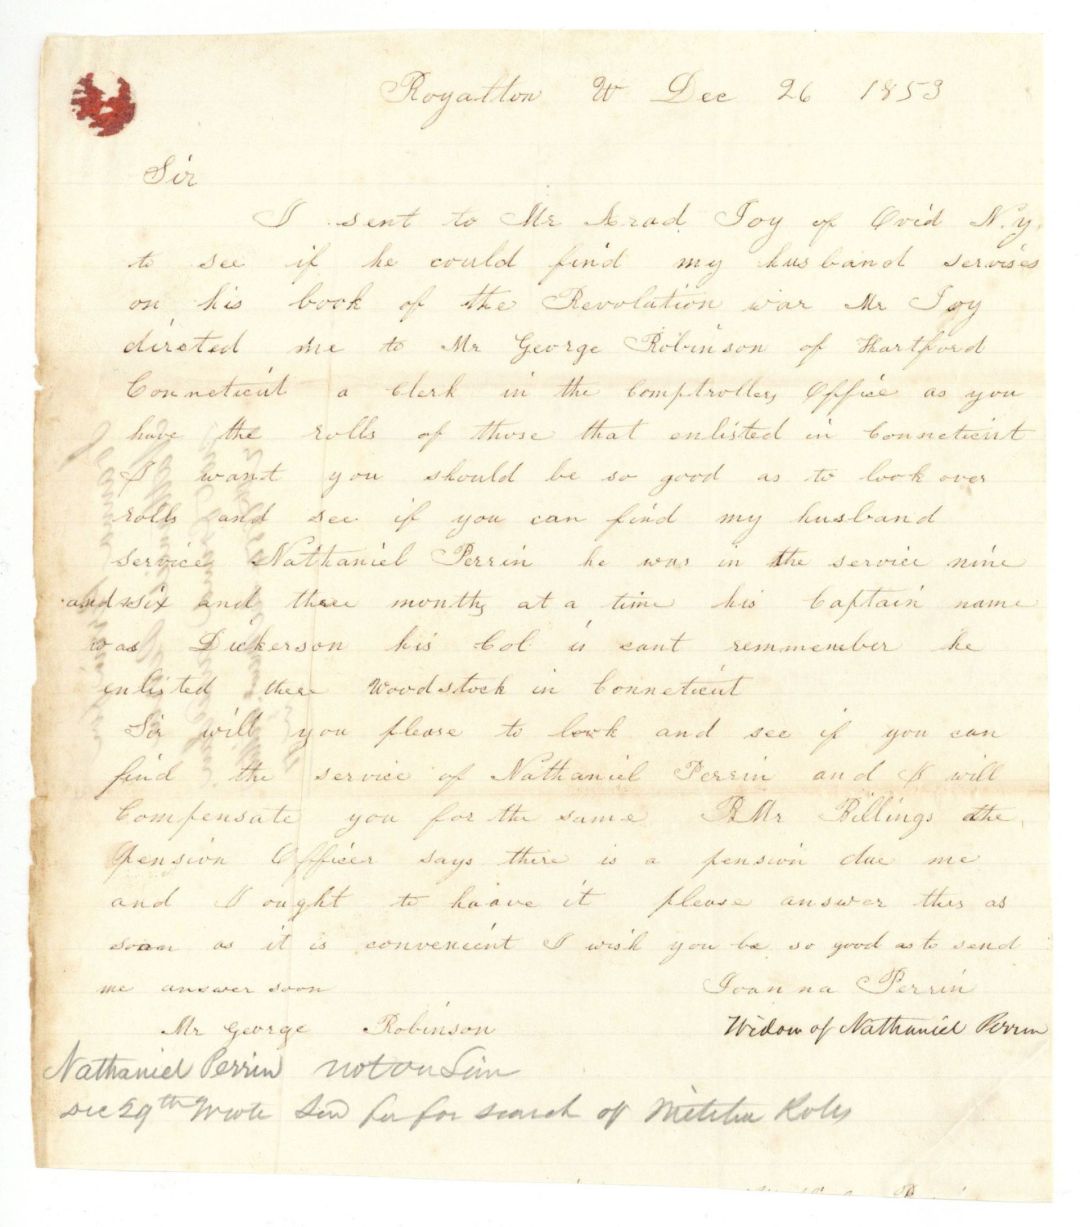 Royalton Vt Dec 26 1853
Sir
I sent to Mr Arad Joy of Ovid N.y.
to see if he could find my husband servises
on his book of the Revolation war Mr Joy
directed me to Mr George Robinson of Hartford
Conneticut a Clerk in the Comptrollers Office as you
have the rolls of those that enlisted in Conneticut
I want you should be so good as to look over
rolls and see if you can find my husband
service Nathaniel Perrin he was in the service nine
and six and three months at a time his Captain name
was Dickerson his Col is cant remmember he
enlisted there Woodstock in Conneticut
Sir will you please to look and see if you can
find the service of Nathaniel Perrin and I will
Compensate you for the same Mr Billings the
Pension Officer says there is a pension due me
and I ought to haave it please answer this as
soon as it is convenient I wish you be so good as to send
me answer soon Joanna Perrin
Mr George Robinson Widow of Nathaniel Perrin
Nathaniel Perrin not on
Dec 29th Wrote for search of Rolls